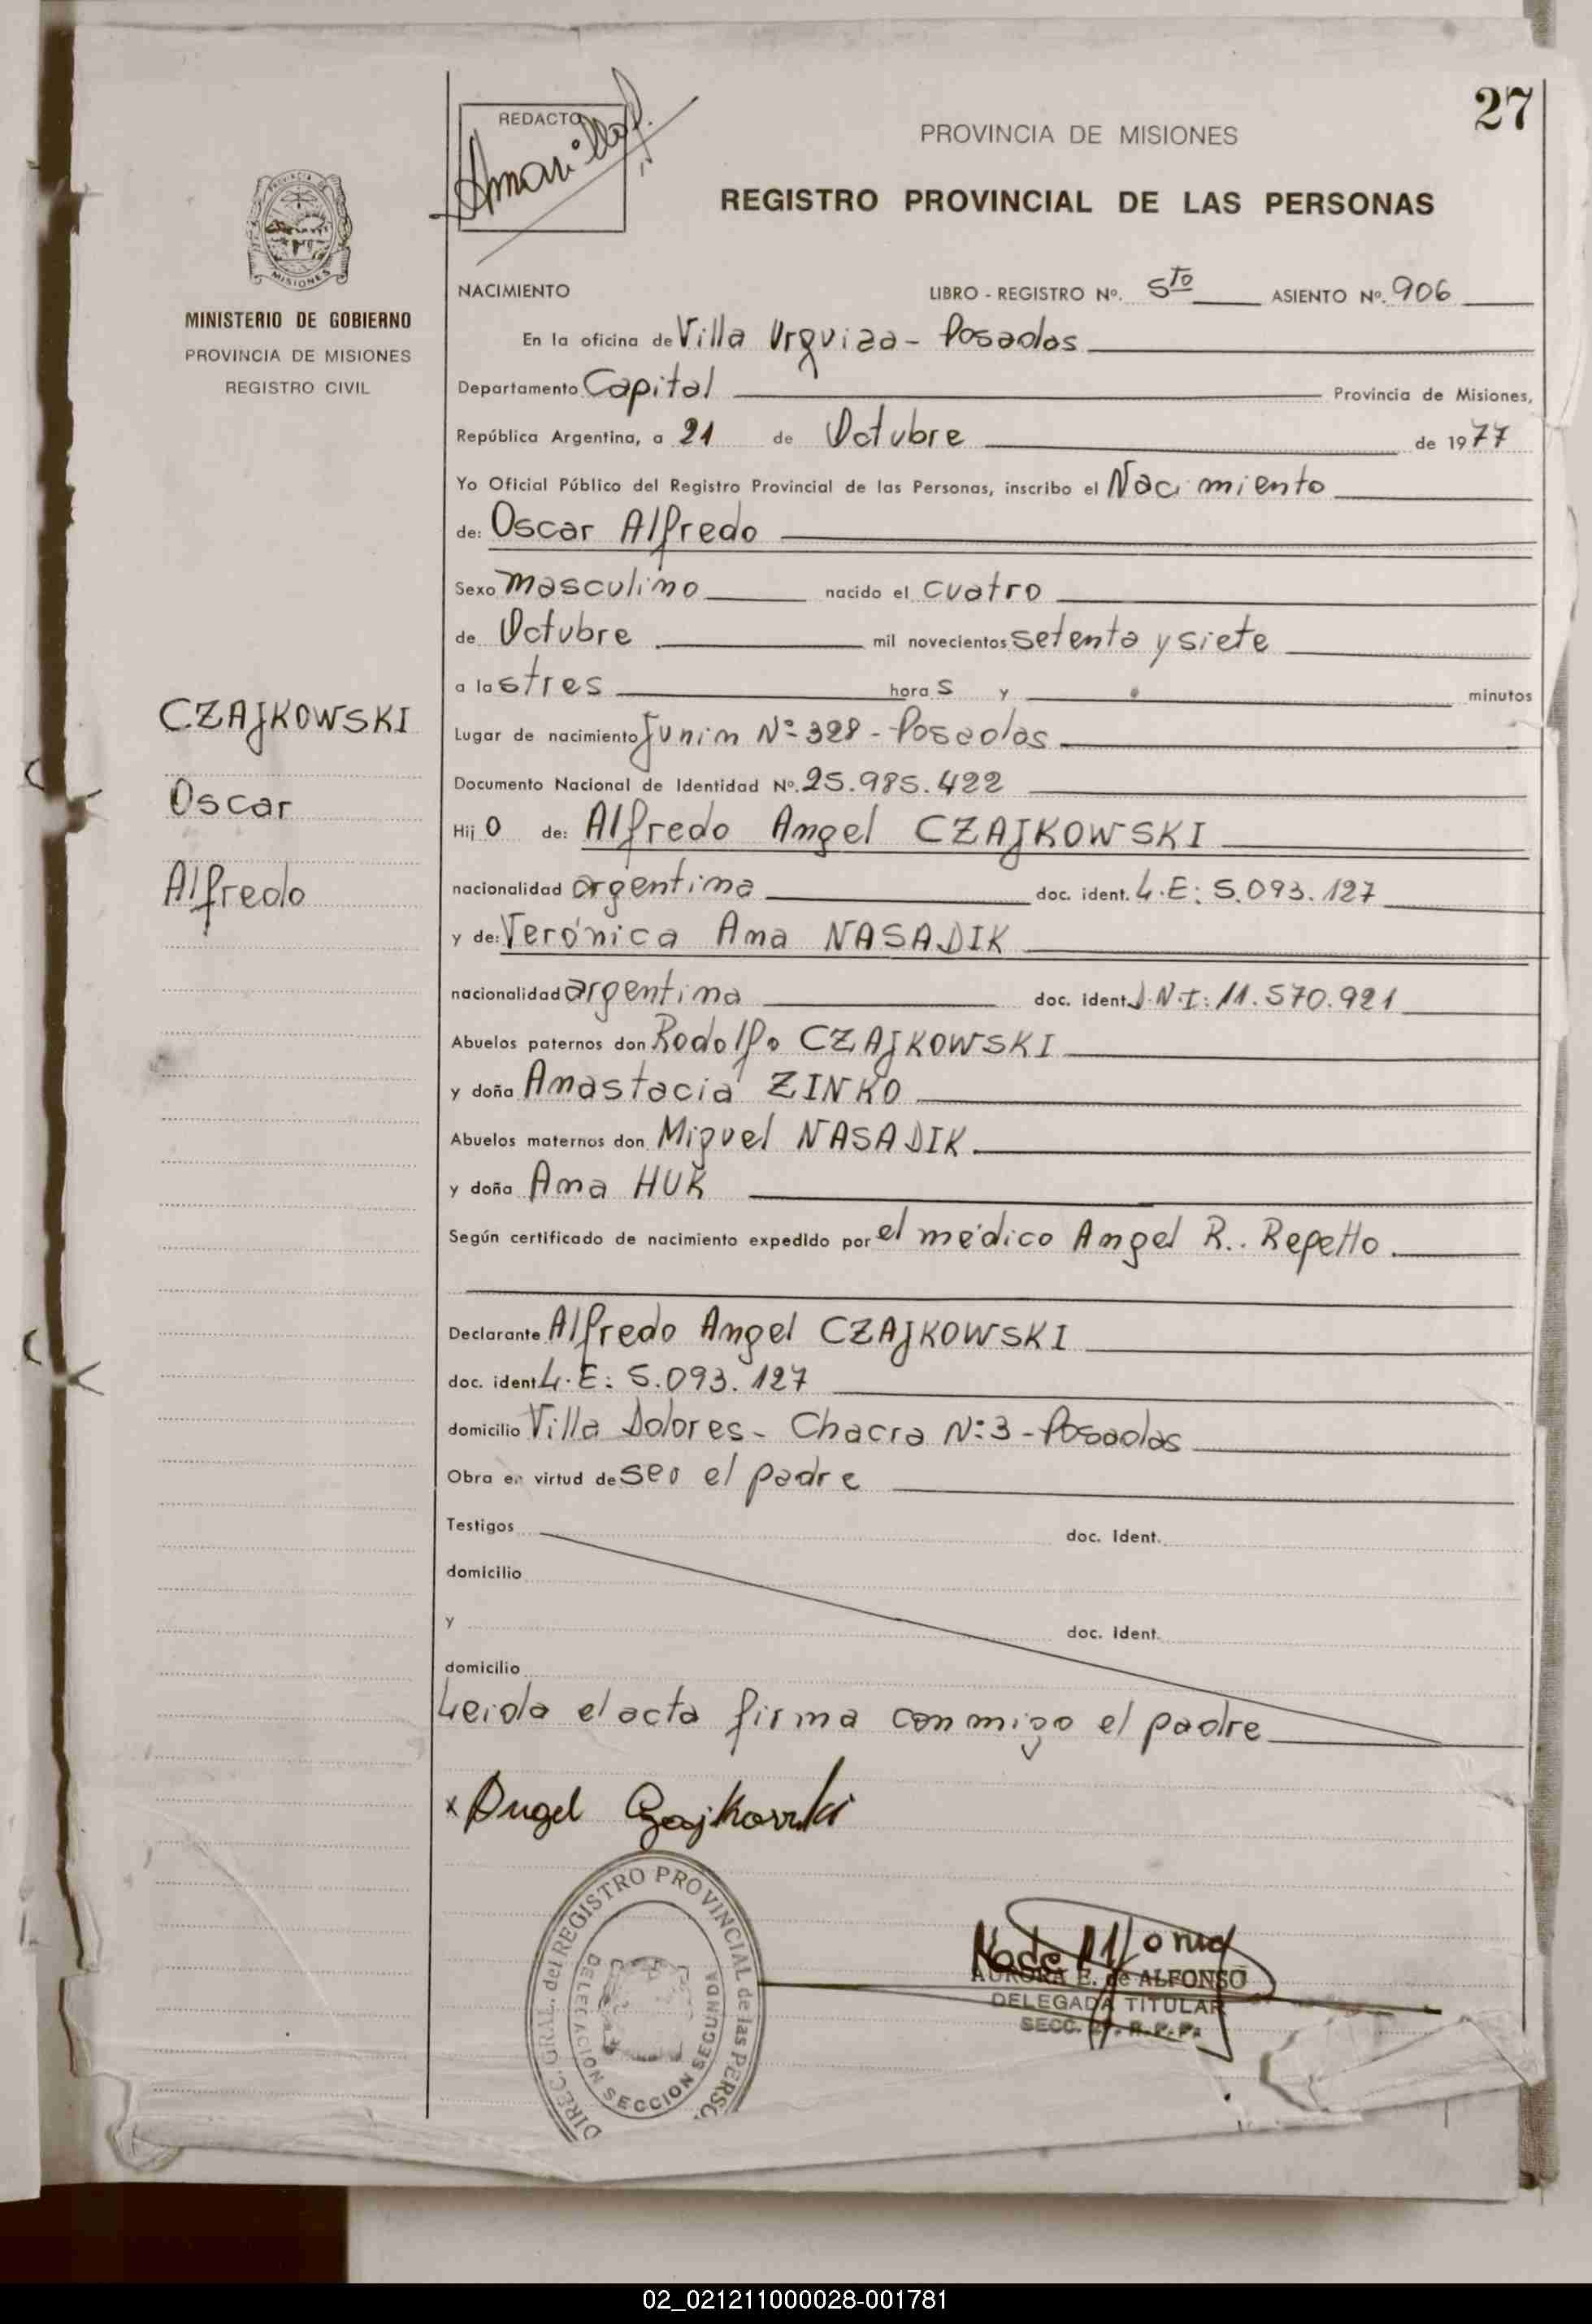 27
REDACTO
PROVINCIA DE MISIONES
REGISTRO PROVINCIAL DE LAS PERSONAS
MISIONES
MINISTERIO DE GOBIERNO
PROVINCIA DE MISIONES
REGISTRO CIVIL
NACIMIENTO LIBRO - REGISTRO Nº. 5to ASIENTO Nº. 906
En la oficina de Villa Urquiza - Posadas
Departamento Capital Provincia de Misiones,
República Argentina, a 21 de Octubre de 1977
Yo Oficial Público del Registro Provincial de las Personas, inscribo el Nacimiento
de: Oscar Alfredo
Sexo masculino nacido el cuatro
de Octubre mil novecientos setenta y siete
a las tres horas y minutos
CZAJKOWSKI
Oscar
Alfredo
Lugar de nacimiento Junin Nº 328 - Posadas
Documento Nacional de Identidad Nº. 25.985.422
Hijo de: Alfredo Angel CZAJKOWSKI
nacionalidad argentina doc. ident. L.E: 5.093.127
y de: Verónica Ana NASADIK
nacionalidad argentina doc. ident. D.N.I: 11.570.921
Abuelos paternos don Rodolfo CZAJKOWSKI
y doña Anastacia ZINKO
Abuelos maternos don Miguel NASADIK
y doña Ana HUK
Según certificado de nacimiento expedido por el médico Angel R. Repetto
Declarante Alfredo Angel CZAJKOWSKI
doc. ident L.E: 5.093.127
domicilio Villa Dolores - Chacra Nº 3 - Posadas
Obra en virtud de ser el padre
Testigos doc. ident.
domicilio
y doc. ident.
domicilio
Leida el acta firma conmigo el padre
x Angel Czajkowski
DIREC. GRAL. del REGISTRO PROVINCIAL de las PERSO
DELEGACION SECCION SEGUNDA
AURORA E. de ALFONSO
DELEGADA TITULAR
SECC. 2ª. R.P.P.
02_021211000028-001781